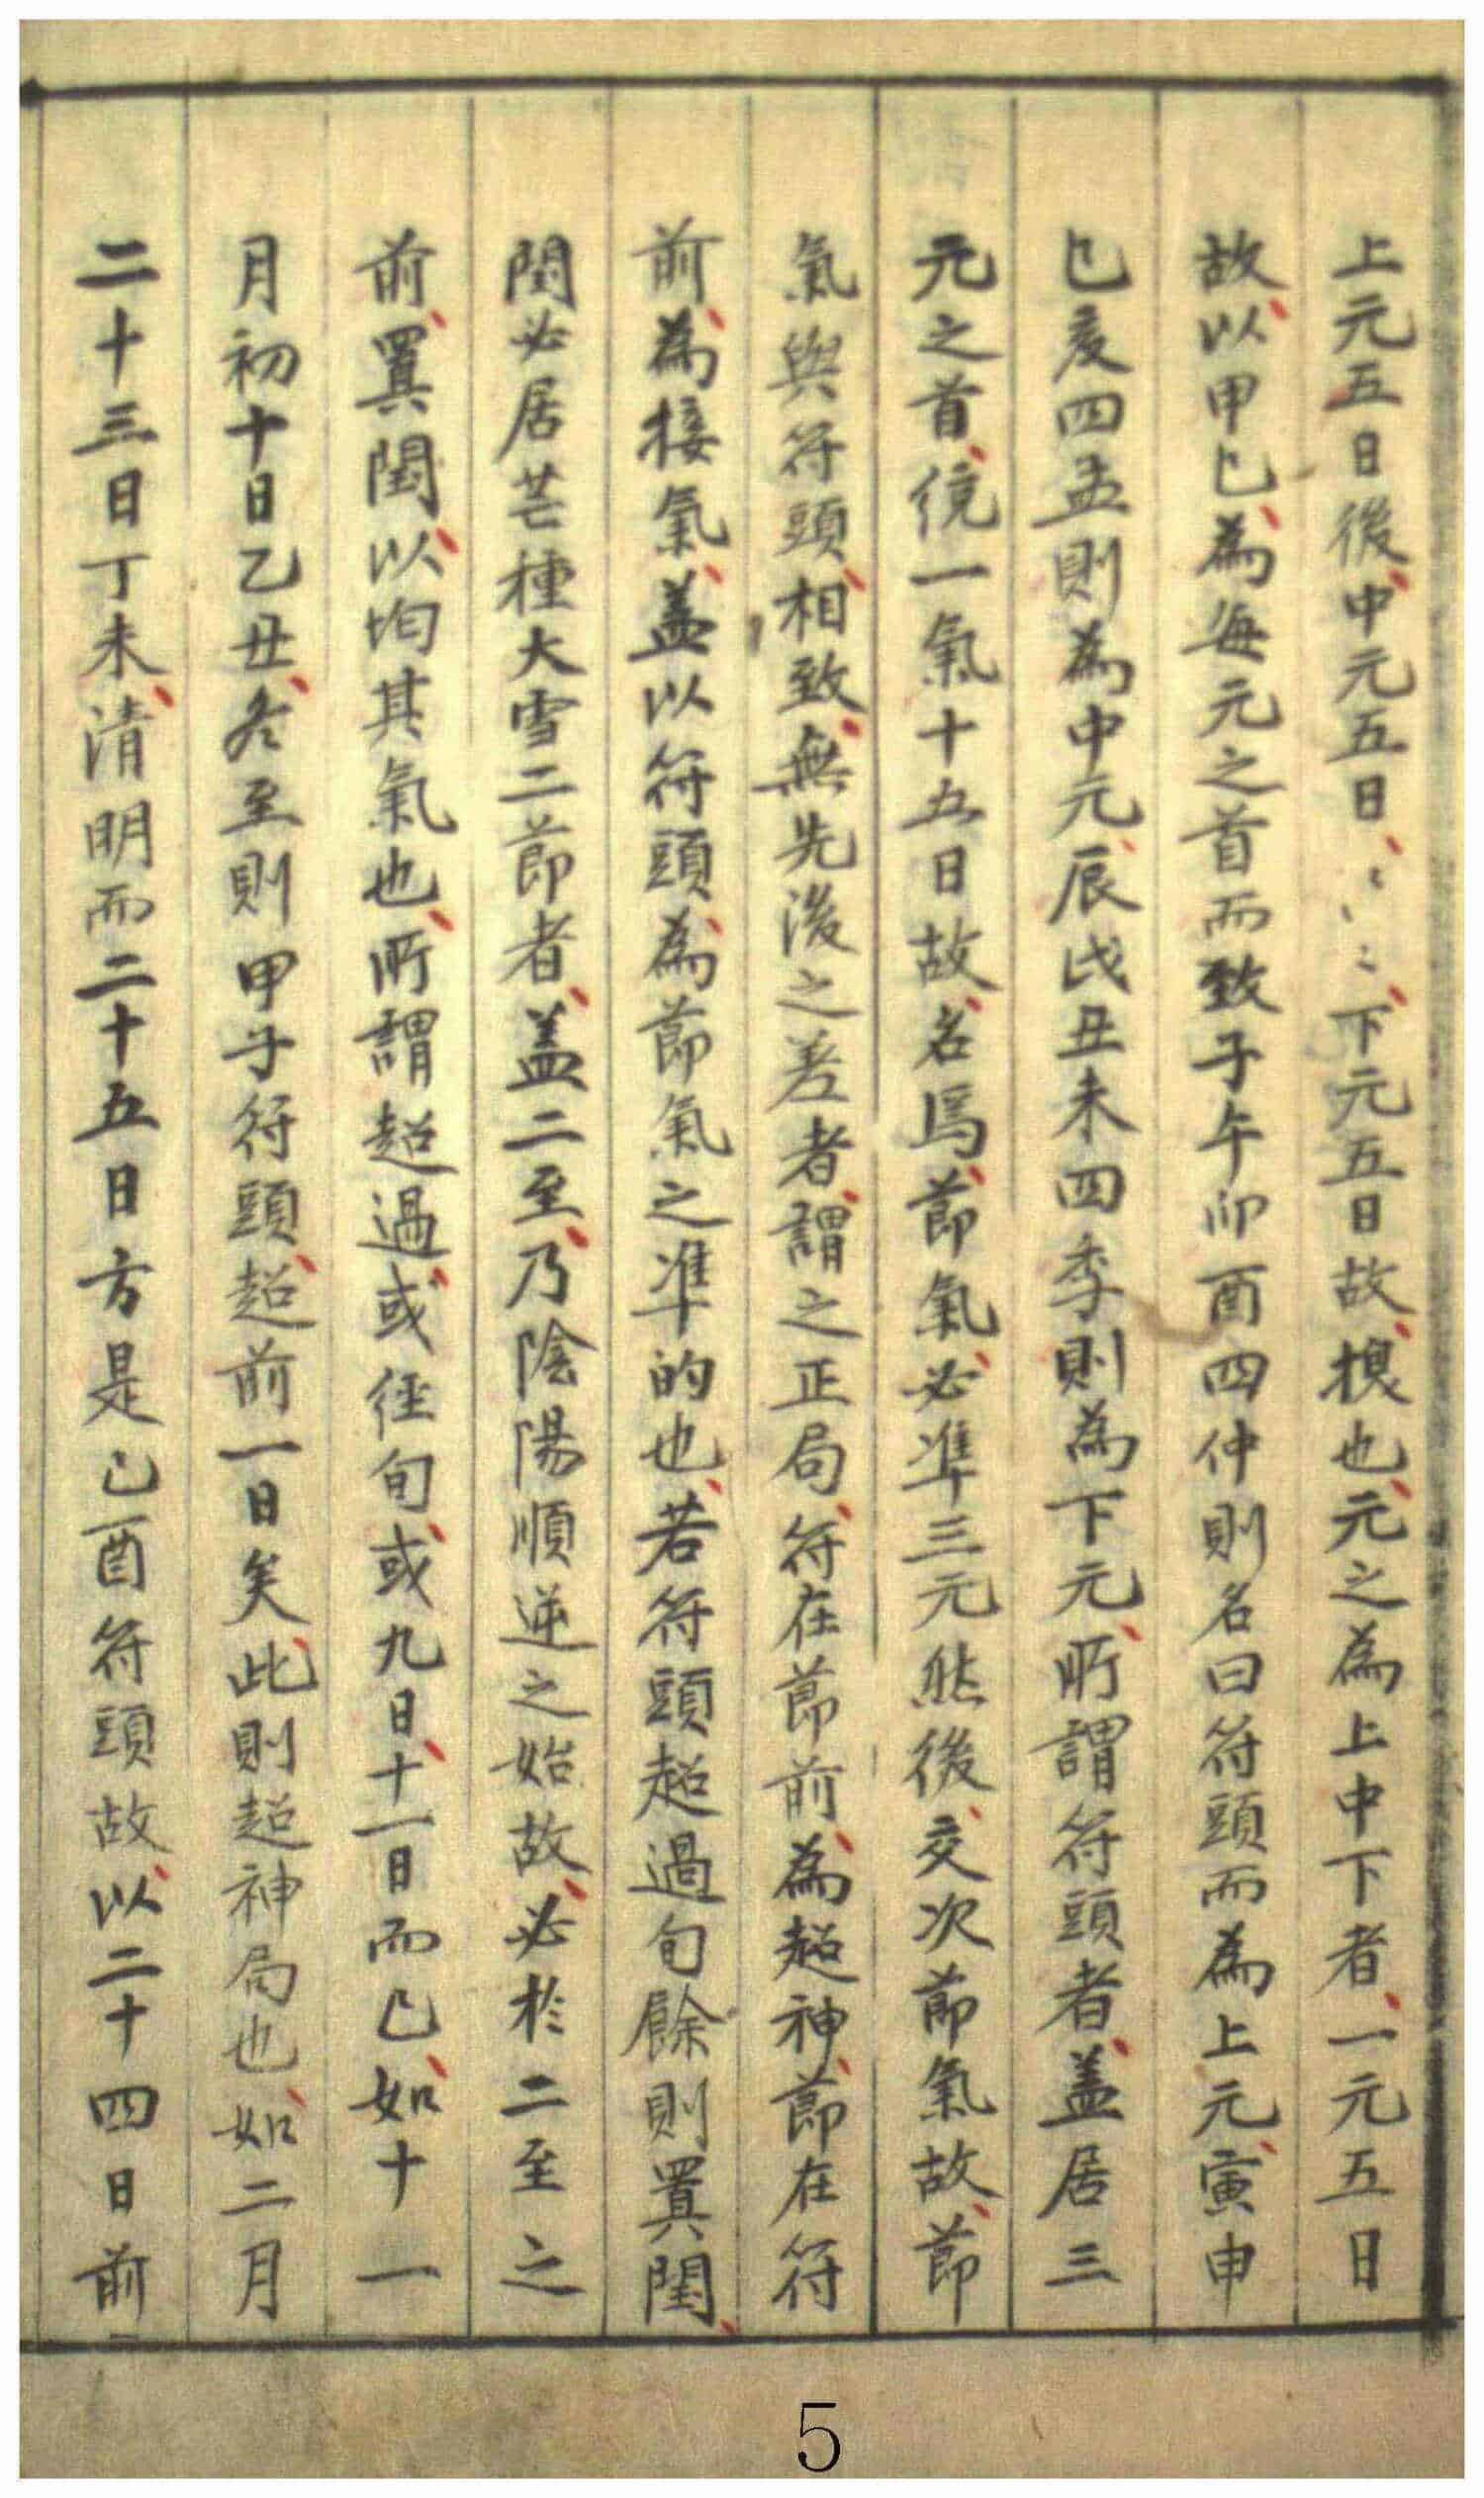 上元五日後中元五日〻〻〻下元五日故摠也元之為上中下者一元五日
故以甲己為每元之首而致子午卯酉四仲則名曰符頭而為上元寅申
巳亥四孟則為中元辰戌丑未四季則為下元所謂符頭者盖居三
元之首統一氣十五日故名焉節氣必準三元然後交次節氣故節
氣與符頭相致無先後之差者謂之正局符在節前為超神節在符
前為接氣盖以符頭為節氣之準的也若符頭超過旬餘則置閏
閏必居芒種大雪二節者盖二至乃陰陽順逆之始故必於二至之
前置閏以均其氣也所謂超過或徑旬或九日十一日而已如十一
月初十日乙丑冬至則甲子符頭超前一日矣此則超神局也如二月
二十三日丁未清明而二十五日方是己酉符頭故以二十四日前
5